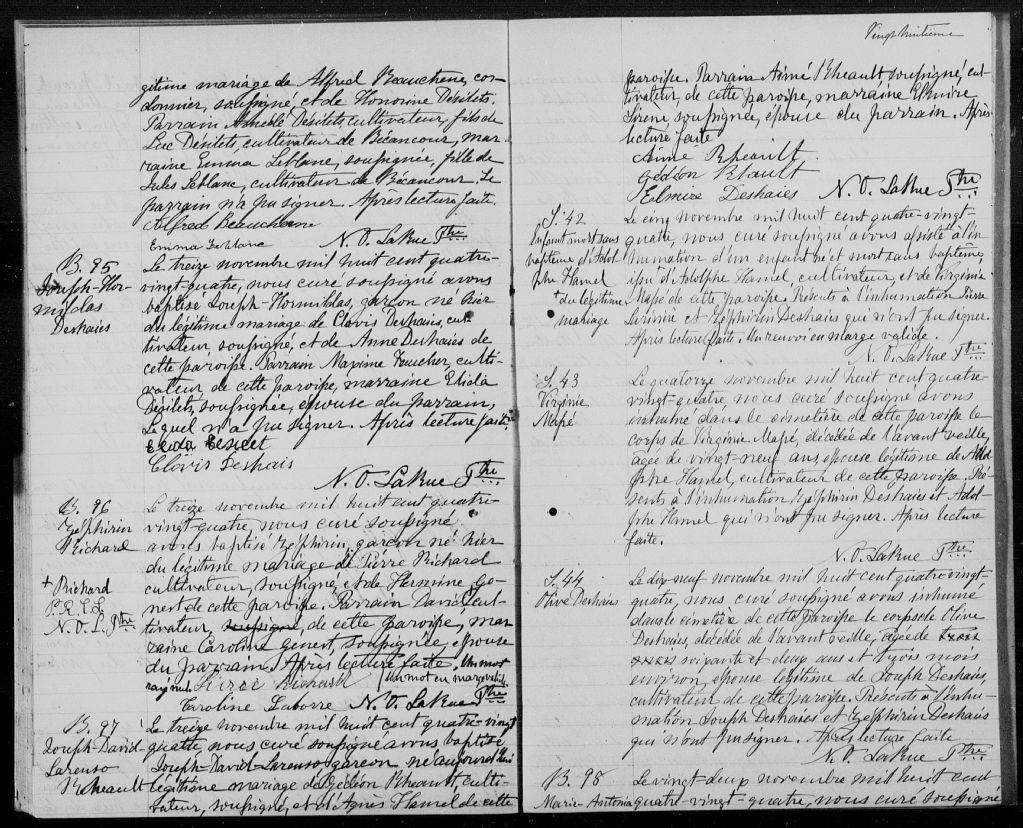 gitime mariage de Alfred Beauchene, cor-
donnier, soussigné, et de Honorine Désilets.
Parrain Désilets, cultivateur, fils de
Luc Désilets, cultivateur de Bécancour, mar-
raine Emma Leblanc, soussignée, fille de
Jules Leblanc, cultivateur de Bécancour. Le
parrain n'a pu signer. Après lecture faite.
Alfred Beauchene
Emma Leblanc N. O. LaRue Ptre
B. 95
Joseph-Hor-
midas
Deshaies
Le treize novembre mil huit cent quatre-
vingt-quatre, nous curé soussigné avons
baptisé Joseph-Hormidas, garçon né hier
du légitime mariage de Clovis Deshaies, cul-
tivateur, soussigné, et de Anne Deshaies de
cette paroisse. Parrain Maxime Foucher, culti-
vateur, de cette paroisse, marraine Elida
Désilets, soussignée, épouse du parrain,
lequel n'a pu signer. Après lecture faite.
Elida
Clovis Deshais
N. O. LaRue Ptre
B. 96
Zéphirin
Richard
+ Richard
P. R. C. L.
N. O. L. Ptre
Le treize novembre mil huit cent quatre-
vingt-quatre, nous curé soussigné
avons baptisé Zéphirin, garçon né hier
du légitime mariage de Pierre Richard
cultivateur, soussigné, et de Hermine Ge-
nest de cette paroisse. Parrain David cul-
tivateur, soussigné, de cette paroisse, mar-
raine Caroline Genest, soussignée, épouse
du parrain. Après lecture faite. Un mot
rayé nul. Pierre Richard un mot en marge valide.
Caroline Labarre N. O. LaRue Ptre
B. 97
Joseph-David-
Larenso
Rheault
Le treize novembre mil huit cent quatre-vingt
quatre, nous curé soussigné avons baptisé
Joseph-David-Larenso garçon né aujourd'hui
légitime mariage de Gédéon Rheault, culti-
vateur, soussigné, et d'Agnès Hamel de cette
Vingt huitième
paroisse. Parrain Aimé Rheault soussigné, cul-
tivateur, de cette paroisse, marraine Elmire
Sirene, soussignée, épouse du parrain. Après
lecture faite
Aimé Rheault.
Gédéon Rheault
Elmire Deshaies N. O. LaRue Ptre
S. 42
Enfant mort sans
baptême d'Adol-
phe Hamel
+ du légitime
mariage
Le cinq novembre mil huit cent quatre-vingt-
quatre, nous curé soussigné avons assisté à l'in
humation d'un enfant né et mort sans baptême,
issu d'Adolphe Hamel, cultivateur, et de Virginie
Mapé de cette paroisse. Présents à l'inhumation Pierre
et Zéphirin Deshaies qui n'ont pu signer.
Après lecture faite. Un renvoi en marge valide.
N. O. LaRue Ptre
S. 43
Virginie
Mapé
Le quatorze novembre mil huit cent quatre-
vingt-quatre, nous curé soussigné avons
inhumé dans le cimetière de cette paroisse le
corps de Virginie Mapé, décédée de l'avant veille,
agée de vingt-neuf ans épouse légitime de Adol
phe Hamel, cultivateur de cette paroisse. Pré-
sents à l'inhumation Zéphirin Deshaies et Adol-
phe Hamel qui n'ont pu signer. Après lecture
faite.
N. O. LaRue Ptre
S. 44
Olive Deshais
Le dix-neuf novembre mil huit cent quatre-vingt-
quatre, nous curé soussigné avons inhumé
dans le cimetière de cette paroisse le corps de Olive
Deshaies, décédée de l'avant veille, agée de
soixante et deux ans et trois mois
environ, épouse légitime de Joseph Deshaies,
cultivateur de cette paroisse. Présents à l'inhu-
mation Joseph Deshaies et Zéphirin Deshaies
qui n'ont pu signer. Après lecture faite
N. O. LaRue Ptre
B. 98
Marie-Antonia
Le vingt-deux novembre mil huit cent
quatre-vingt-quatre, nous curé soussigné